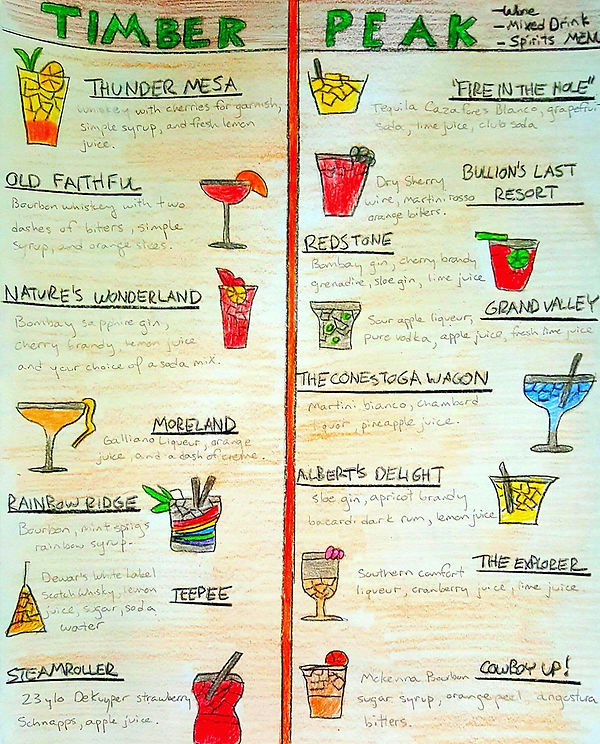 TIMBER PEAK
-Wine
-Mixed Drink
-Spirits MENU
THUNDER MESA
whiskey with cherries for garnish,
simple syrup, and fresh lemon
juice.
OLD FAITHFUL
Bourbon whiskey with two
dashes of bitters, simple
syrup, and orange slices.
NATURE'S WONDERLAND
Bombay sapphire gin,
cherry brandy, lemon juice
and your choice of a soda mix.
MORELAND
Galliano Liqueur, orange
juice, and a dash of creme.
RAINBOW RIDGE
Bourbon, mint sprigs
rainbow syrup.
Dewar's White Label
Scotch Whisky, lemon
juice, sugar, soda
water
TEEPEE
STEAMROLLER
23 ylo DeKuyper strawberry
Schnapps, apple juice.
"FIRE IN THE HOLE"
Tequila Cazafores Blanco, grapefruit
soda, lime juice, club soda
BULLION'S LAST
RESORT
Dry Sherry
wine, martini rosso
orange bitters.
REDSTONE
Bombay gin, cherry brandy
grenadine, sloe gin, lime juice
GRAND VALLEY
Sour apple liqueur,
pure vodka, apple juice, fresh lime juice
THE CONESTOGA WAGON
Martini bianco, chambord
liquor, pineapple juice.
ALBERT'S DELIGHT
Sloe gin, apricot brandy
bacardi dark rum, lemon juice
THE EXPLORER
Southern comfort
liqueur, cranberry juice, lime juice
COWBOY UP!
Mckenna Bourbon
sugar syrup, orange peel, angostura
bitters.